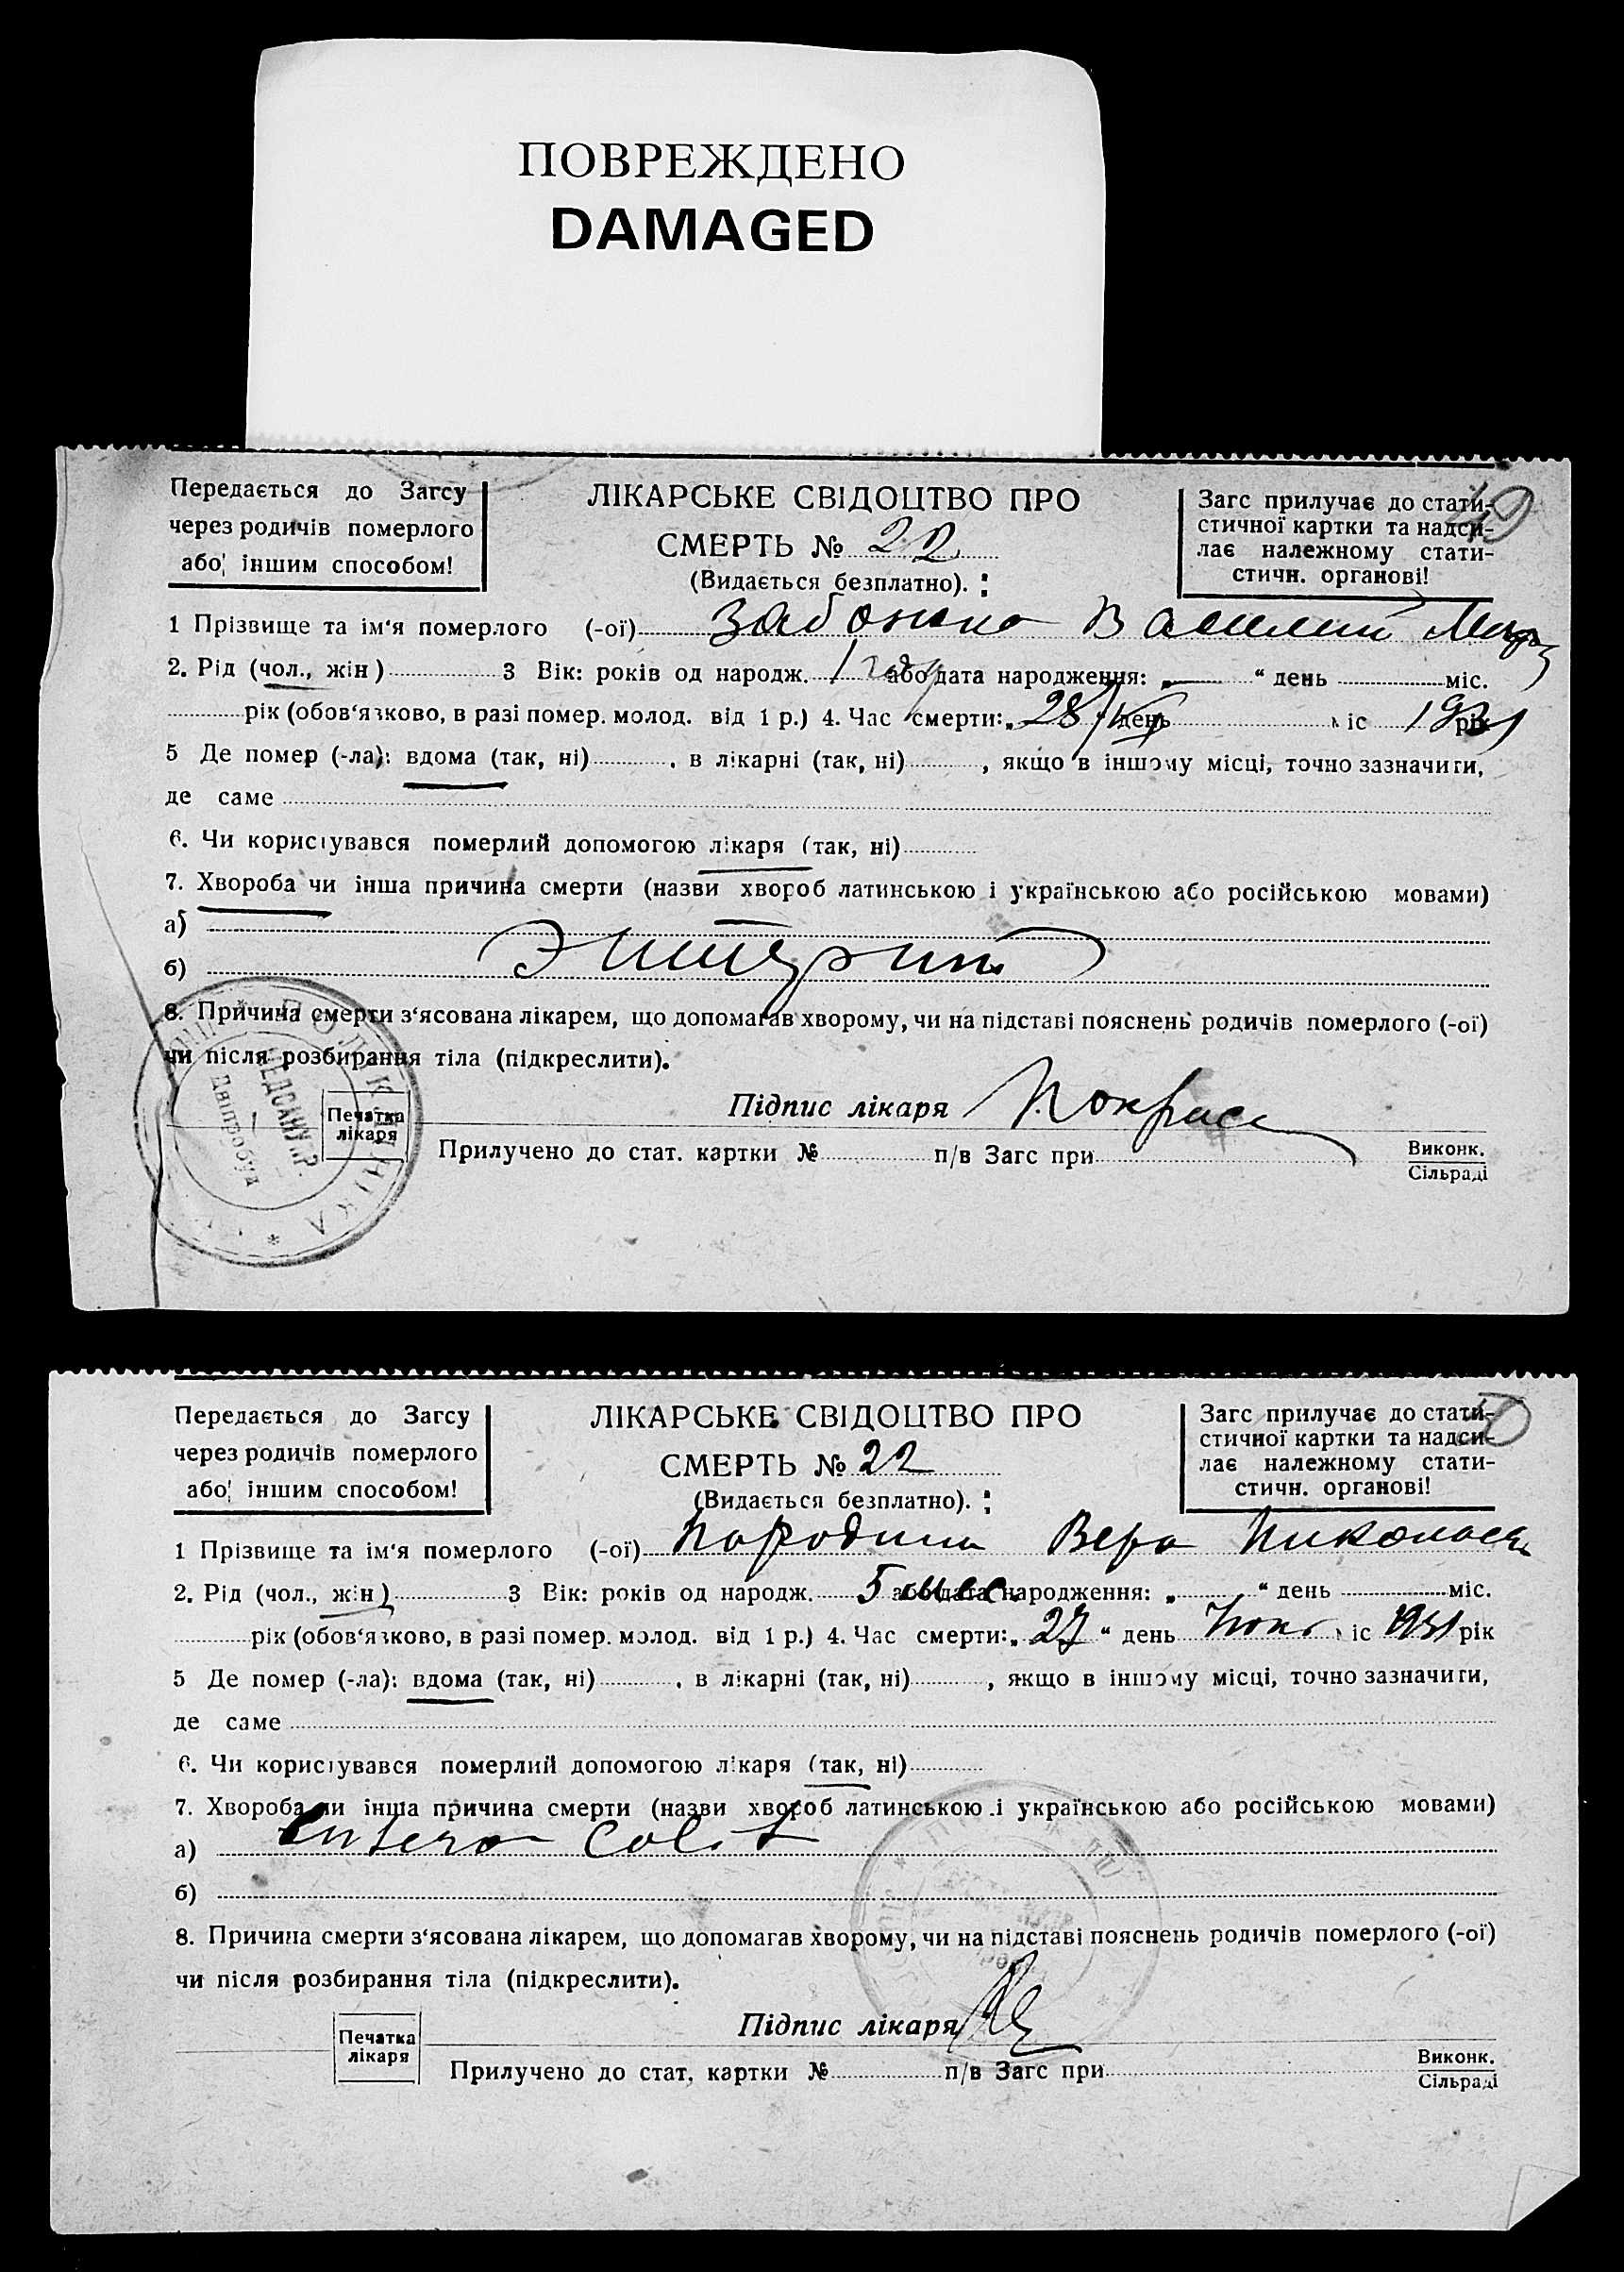 ПОВРЕЖДЕНО
DAMAGED
Передається до Загсу
через родичів померлого
або іншим способом!
ЛІКАРСЬКЕ СВІДОЦТВО ПРО
СМЕРТЬ № 22
(Видається безплатно).
Загс прилучає до стати-
стичної картки та надси-
лає належному стати-
стичн. органові!
49
1 Прізвище та ім'я померлого (-ої) Василий
2. Рід (чол., жін) 3 Вік: років од народж. 1 год або дата народження: „ “ день міс.
рік (обов'язково, в разі помер. молод. від 1 р.) 4. Час смерти: „ 28 “ день міс 1931 рік
5 Де помер (-ла): вдома (так, ні) , в лікарні (так, ні) , якщо в іншому місці, точно зазначити,
де саме
6. Чи користувався померлий допомогою лікаря (так, ні)
7. Хвороба чи інша причина смерти (назви хвороб латинською і українською або російською мовами)
а)
б)
8. Причина смерти з'ясована лікарем, що допомагав хворому, чи на підставі пояснень родичів померлого (-ої)
чи після розбирання тіла (підкреслити).
ПОЛІКЛІНІКА
Печатка
лікаря
Підпис лікаря
Прилучено до стат. картки № п/в Загс при Виконк.
Сільраді
Передається до Загсу
через родичів померлого
або іншим способом!
ЛІКАРСЬКЕ СВІДОЦТВО ПРО
СМЕРТЬ № 22
(Видається безплатно).
Загс прилучає до стати-
стичної картки та надси-
лає належному стати-
стичн. органові!
50
1 Прізвище та ім'я померлого (-ої) Вера
2. Рід (чол., жін) 3 Вік: років од народж. 5 мес. або дата народження: „ “ день міс.
рік (обов'язково, в разі помер. молод. від 1 р.) 4. Час смерти: „ 27 “ день міс 1931 рік
5 Де помер (-ла): вдома (так, ні) , в лікарні (так, ні) , якщо в іншому місці, точно зазначити,
де саме
6. Чи користувався померлий допомогою лікаря (так, ні)
7. Хвороба чи інша причина смерти (назви хвороб латинською і українською або російською мовами)
а) entero Colit
б)
8. Причина смерти з'ясована лікарем, що допомагав хворому, чи на підставі пояснень родичів померлого (-ої)
чи після розбирання тіла (підкреслити).
Печатка
лікаря
Підпис лікаря
Прилучено до стат. картки № п/в Загс при Виконк.
Сільраді